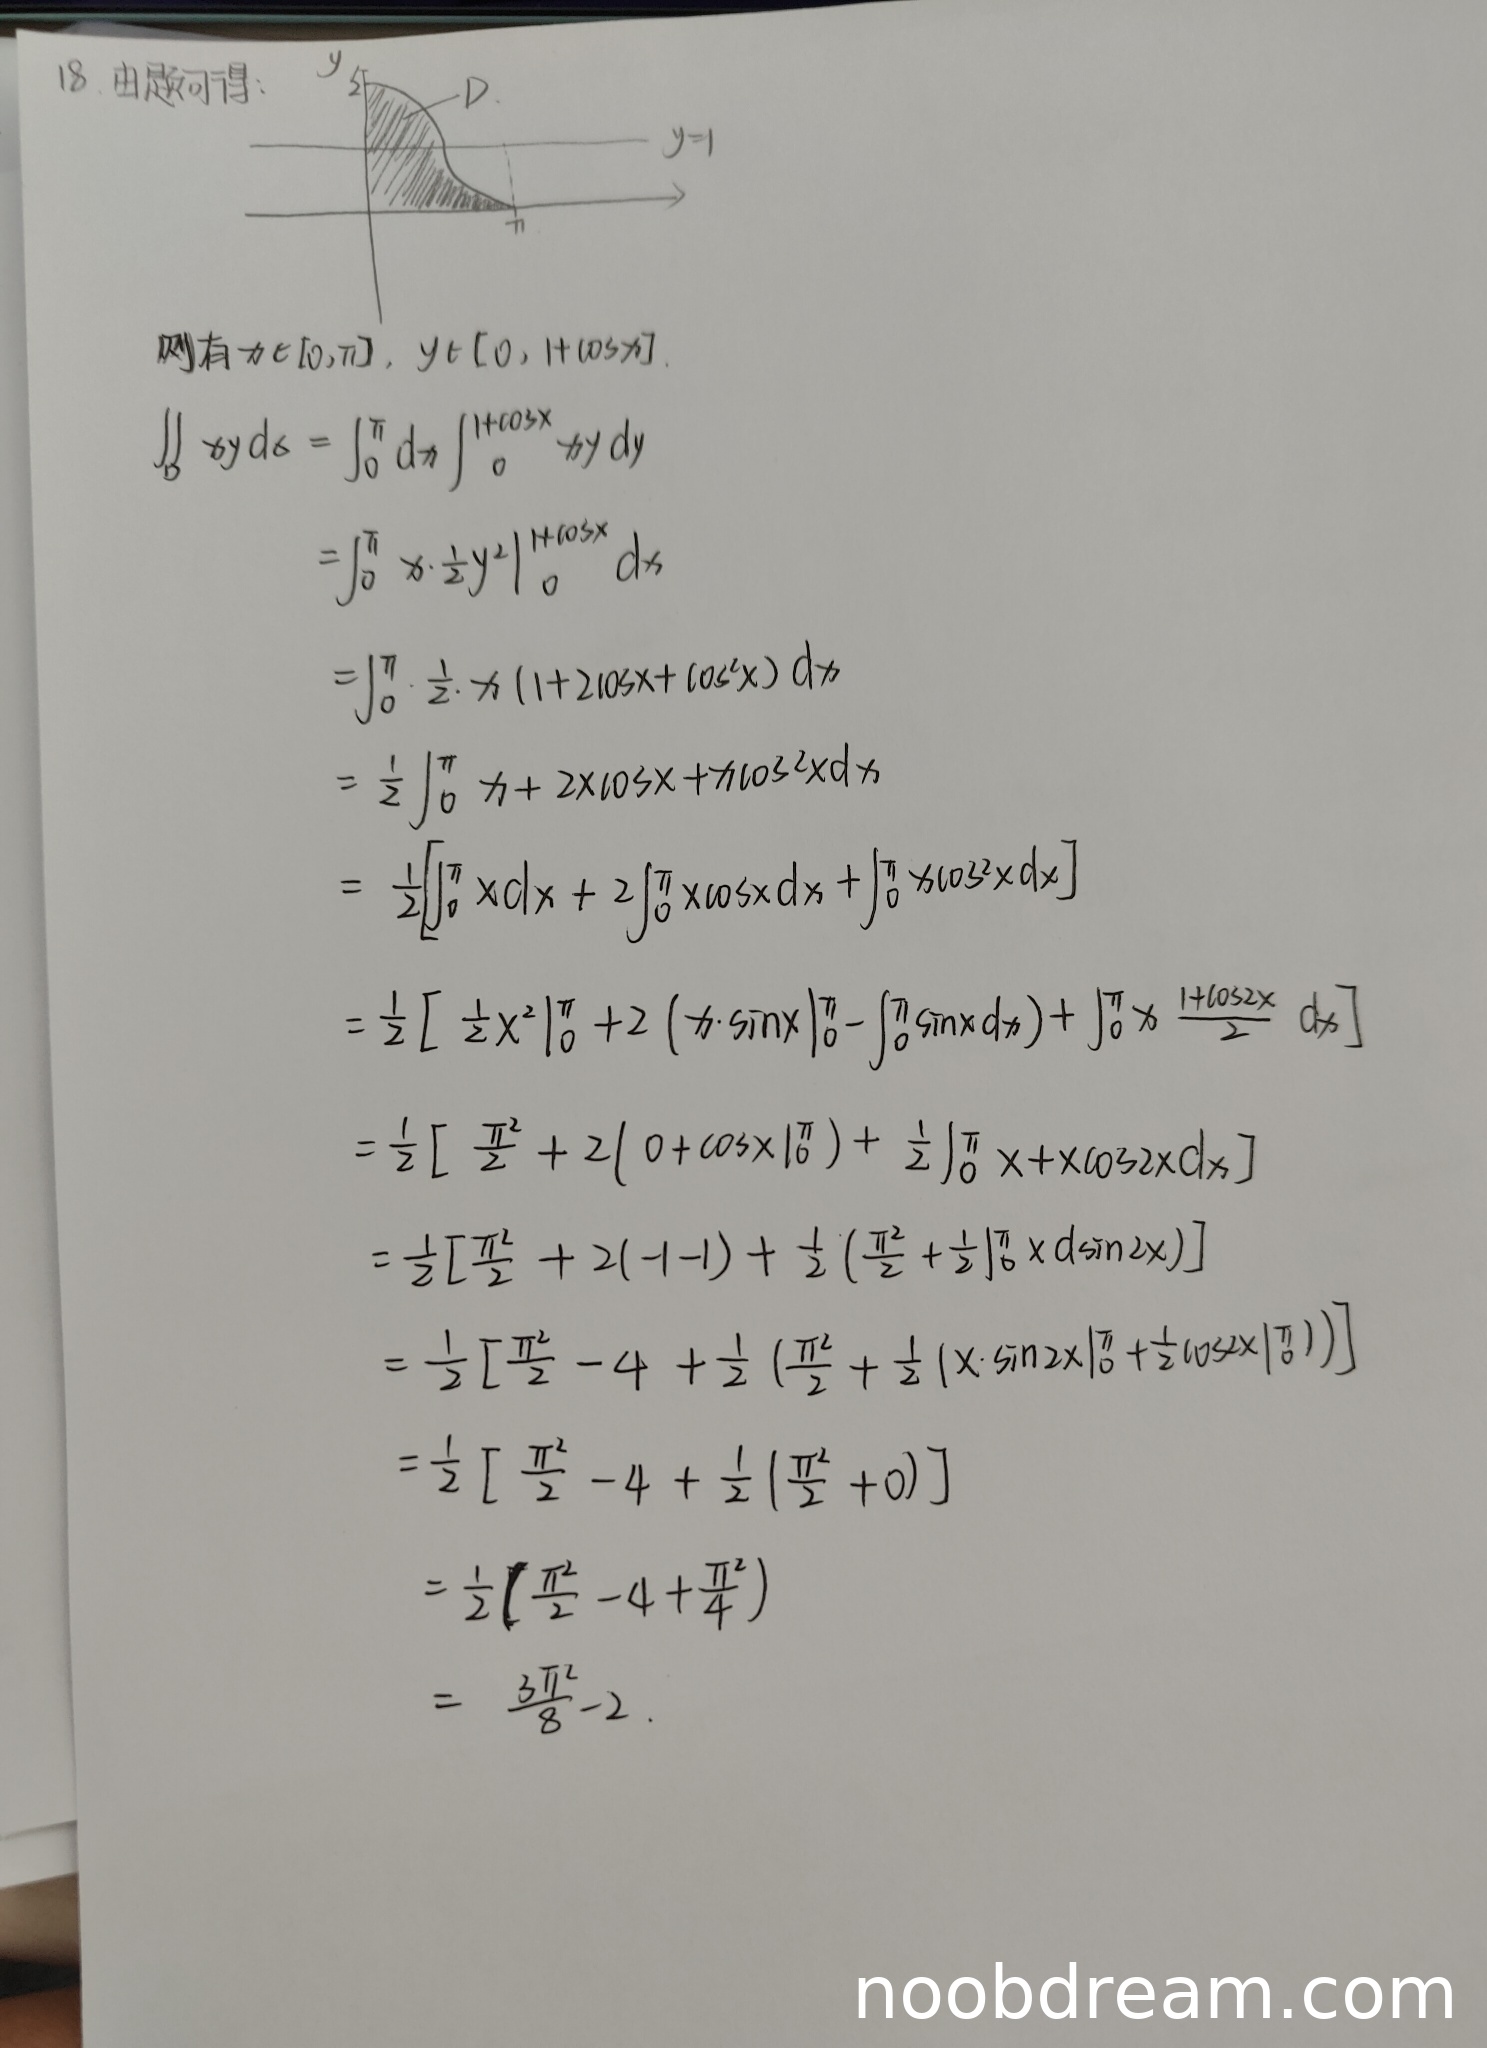 18. 由题可得:
y
2
D.
y=1
π
则有 x∈[0,π], y∈[0, 1+cosx].
∬_D xydσ = ∫_0^π dx ∫_0^{1+cosx} xy dy
= ∫_0^π x·½y²|_0^{1+cosx} dx
= ∫_0^π · ½·x(1+2cosx+cos²x) dx
= ½ ∫_0^π x+2xcosx+xcos²xdx
= ½[∫_0^π xdx + 2∫_0^π xcosxdx + ∫_0^π xcos²xdx]
= ½[ ½x²|_0^π +2(x·sinx|_0^π - ∫_0^π sinxdx) + ∫_0^π x (1+cos2x)/2 dx]
= ½[ π²/2 + 2(0+cosx|_0^π) + ½∫_0^π x+xcos2xdx]
= ½[π²/2 + 2(-1-1) + ½(π²/2 + ½∫_0^π xdsin2x)]
= ½[π²/2 - 4 + ½(π²/2 + ½(x·sin2x|_0^π + ½cos2x|_0^π))]
= ½[π²/2 - 4 + ½(π²/2 + 0)]
= ½(π²/2 - 4 + π²/4)
= 3π²/8 - 2.
noobdream.com